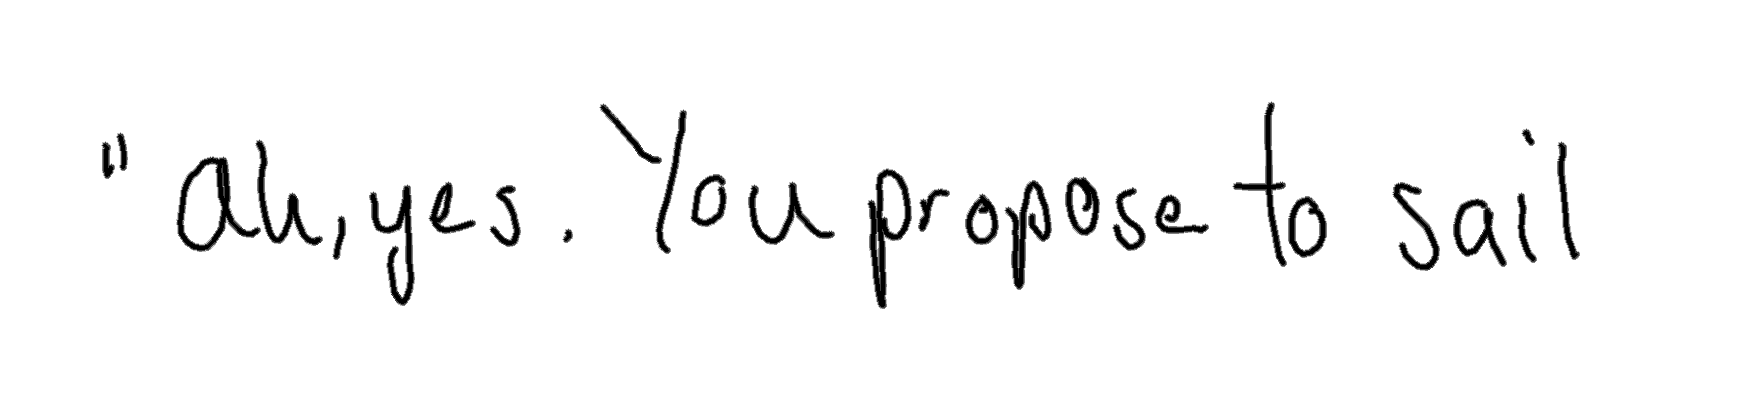 "Ah, yes. You propose to sail